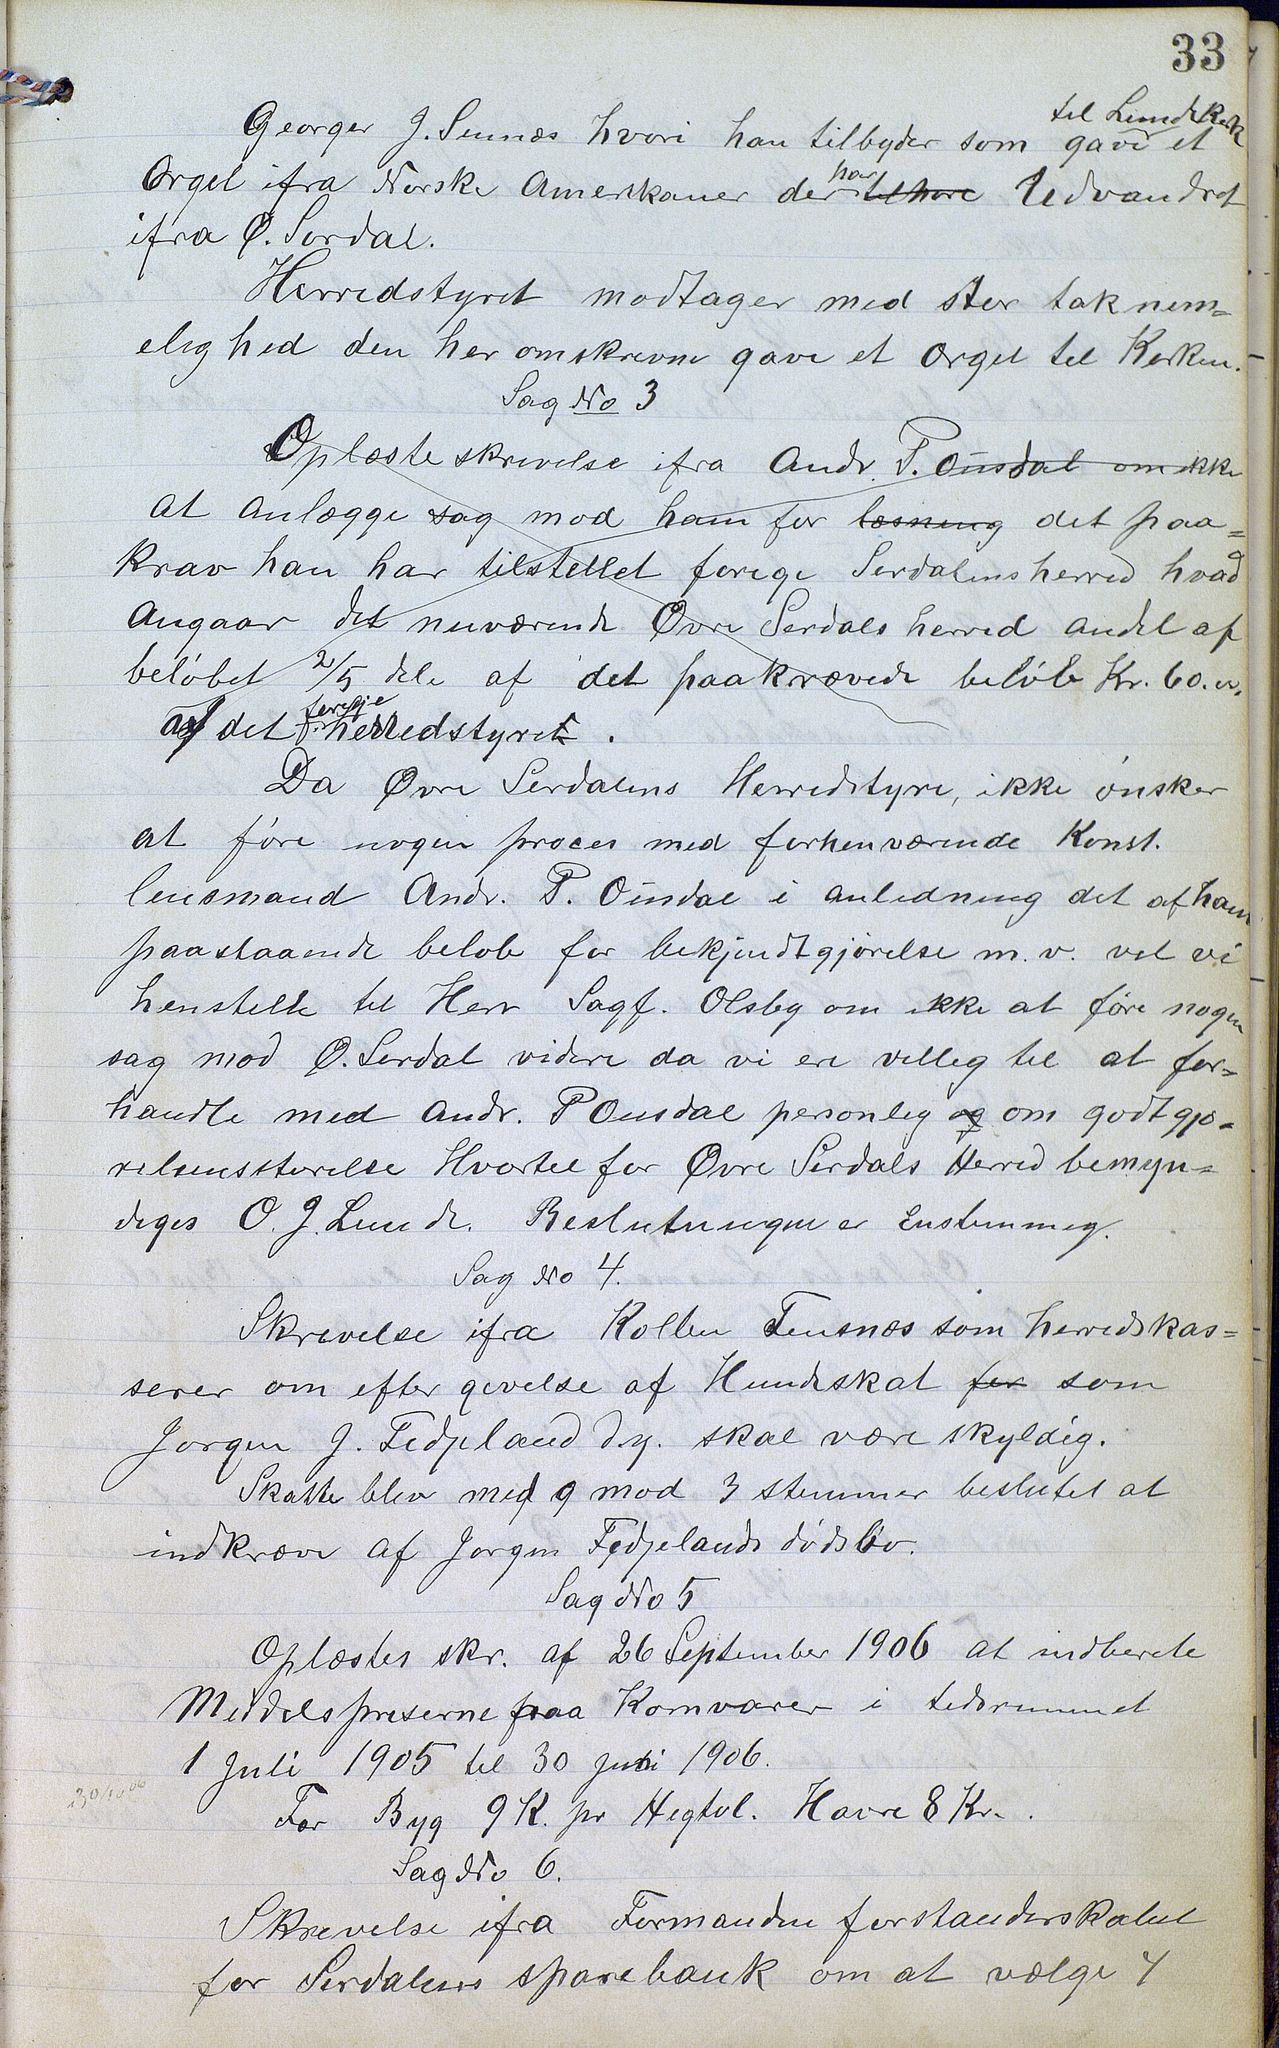 33
til Lunde Kerk
George J. Sunnæs hvori han tilbyder som gave et
Orgel ifra Norske Amerskaner der har tilhøre Udvandret
ifra Ø. Serdal.
Herredstyret modtager med ster taknem=
elighed den her omskrevne gave et Orgel til Kerken.
Sag No 3
Oplæste skrevelse ifra Andr. P. Ousdal om ikke
at anlægge sag mod ham for læsning det paa=
krav han har tilstellet forege Serdalens herred hvad
angaar det nuværende Øvre Serdals herred andel af
beløbet 2/5 dele af det paakrævede beløb Kr. 60.
af det foregje herredstyret.
Da Øvre Serdalens Herredstyre, ikke ønsker
at føre nogen proces med forhenværende Konst.
lensmand Andr. P. Ousdal i anledning det af ham
paastaaende beløb for bekjendtgjørelse m.v. vel vi
henstelle til Herr Sagf. Olsby om ikke at føre nogen
sag mod Ø. Serdal videre da vi ere velleg til at for=
handle med Andr. P Ousdal personleg og om godtgjø=
relsensstørelse Hvortel for Øvre Serdals Herred bemyn=
diges O. J. Lunde. Beslutningen er Enstemmeg.
Sag No 4.
Skrevelse ifra Kolben Tensnæs som herredskas=
serer om efter gevelse af Hundeskat for som
Jørgen J. Fedjeland d.y. skal være skyldig.
Skatte blev med 9 mod 3 stemmer beslutet at
indkræve af Jørgen Fedjelands dødsbo.
Sag No 5
Oplæstes skr. af 26 September 1906 at indberete
Meddelspreserne paa Kornvarer i tedsrummet
1 Juli 1905 til 30 juni 1906.
30/10 06
For Byg 9 K. pr Hegtol. Havre 8 Kr.
Sag No 6.
Skrevelse ifra Formanden forstanderskabet
for Serdalens sparebank om at vælge 4